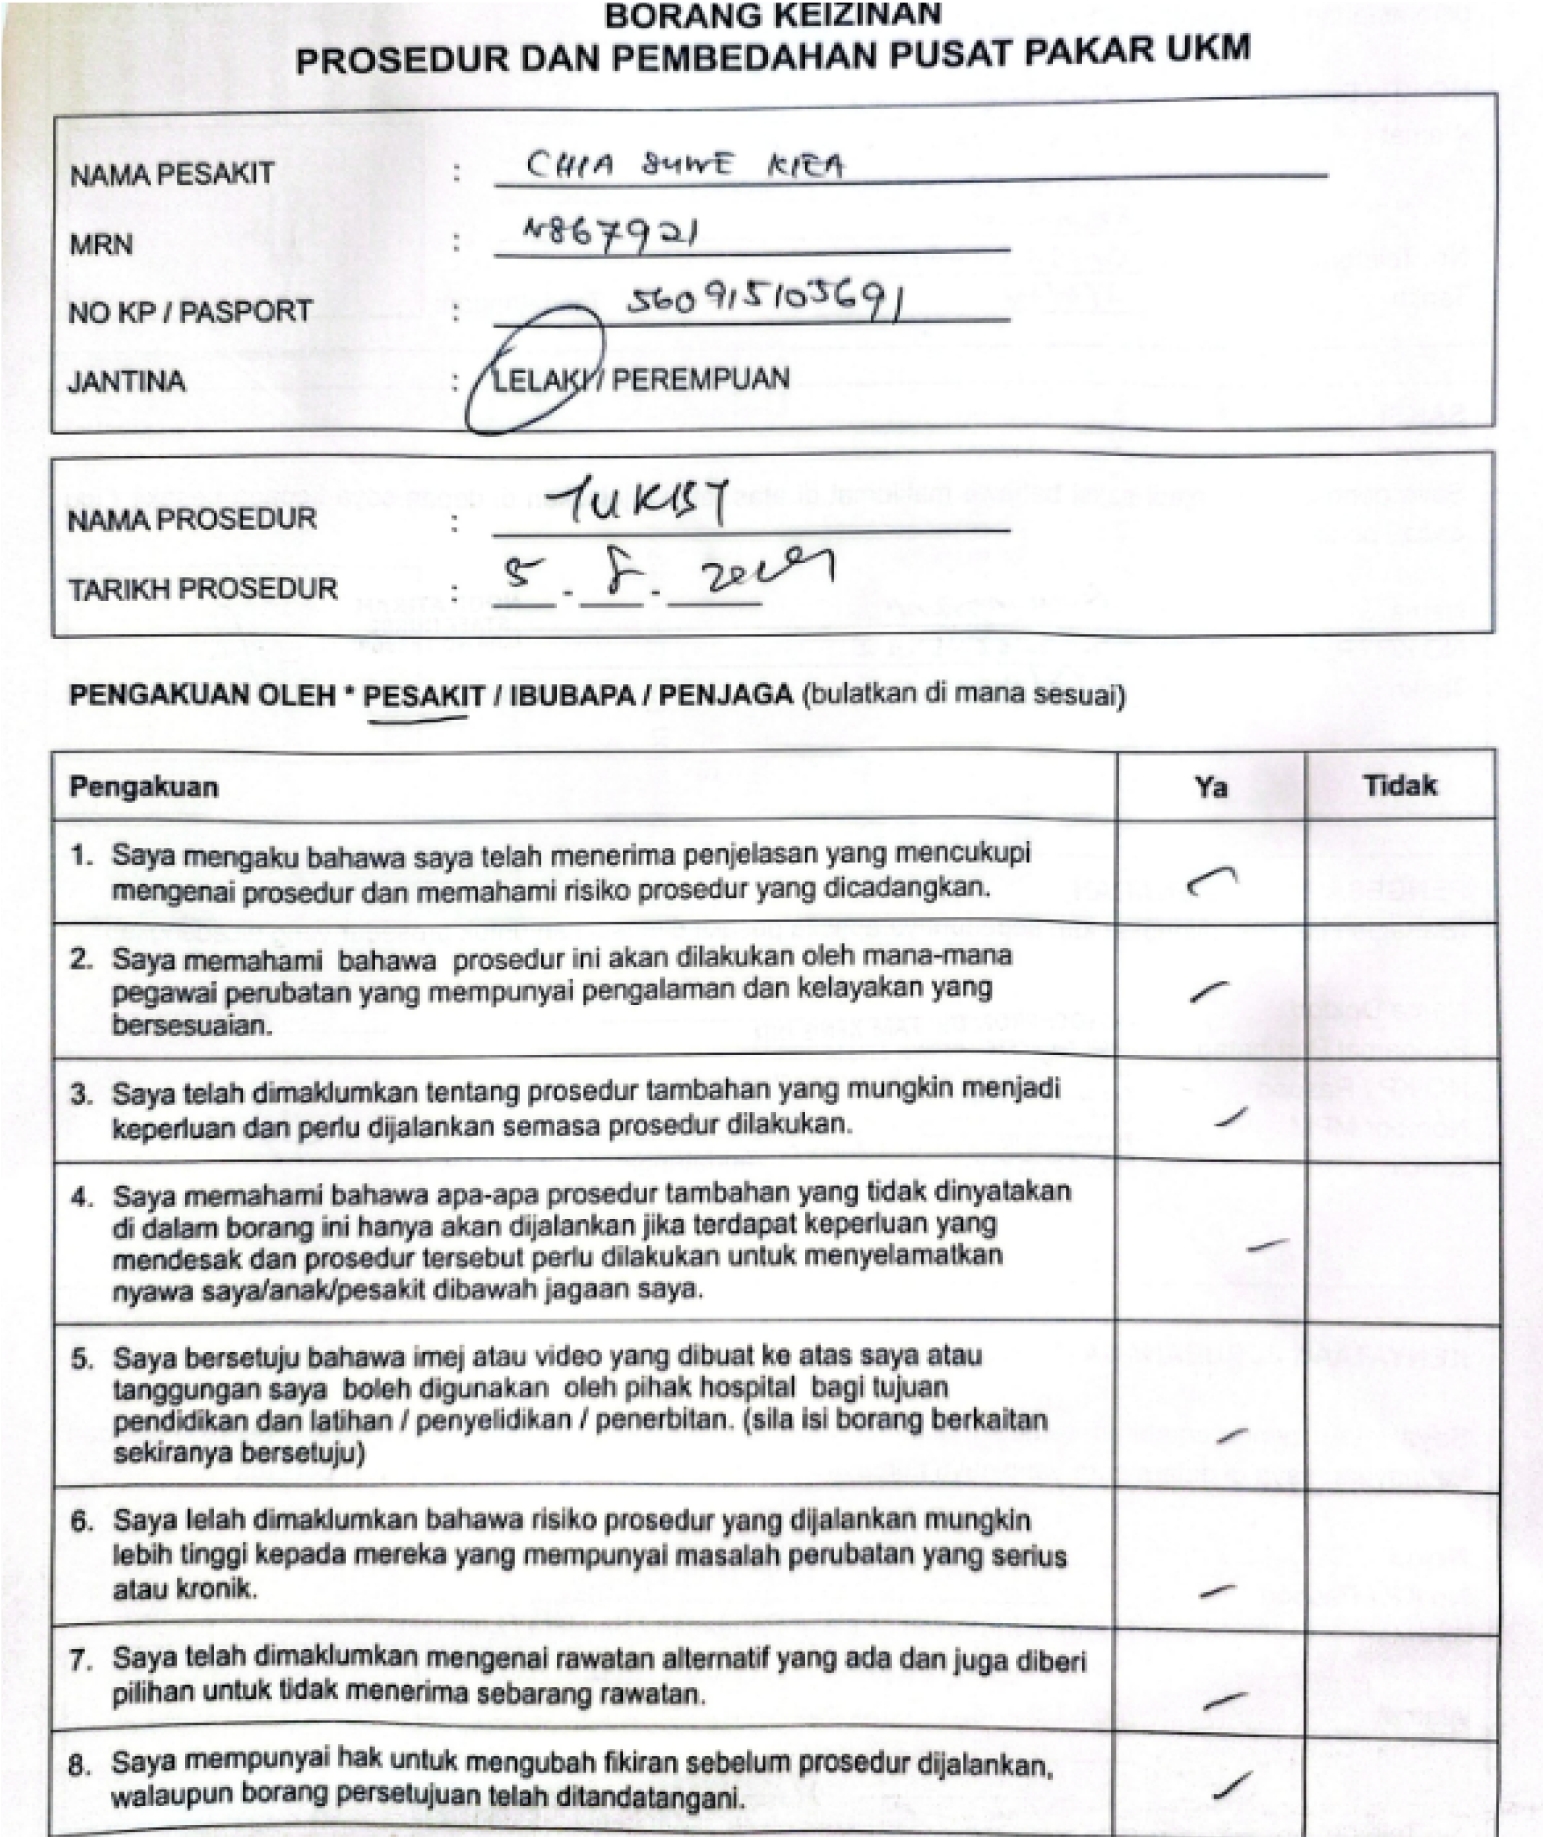 BORANG KEIZINAN
PROSEDUR DAN PEMBEDAHAN PUSAT PAKAR UKM
NAMA PESAKIT : CHIA KIEA
MRN : N867921
NO KP / PASPORT : 560915105691
JANTINA : LELAKI / PEREMPUAN
NAMA PROSEDUR :
TARIKH PROSEDUR : 5 - 8 -
PENGAKUAN OLEH * PESAKIT / IBUBAPA / PENJAGA (bulatkan di mana sesuai)
Pengakuan Ya Tidak
1. Saya mengaku bahawa saya telah menerima penjelasan yang mencukupi
mengenai prosedur dan memahami risiko prosedur yang dicadangkan.
2. Saya memahami bahawa prosedur ini akan dilakukan oleh mana-mana
pegawai perubatan yang mempunyai pengalaman dan kelayakan yang
bersesuaian.
3. Saya telah dimaklumkan tentang prosedur tambahan yang mungkin menjadi
keperluan dan perlu dijalankan semasa prosedur dilakukan.
4. Saya memahami bahawa apa-apa prosedur tambahan yang tidak dinyatakan
di dalam borang ini hanya akan dijalankan jika terdapat keperluan yang
mendesak dan prosedur tersebut perlu dilakukan untuk menyelamatkan
nyawa saya/anak/pesakit dibawah jagaan saya.
5. Saya bersetuju bahawa imej atau video yang dibuat ke atas saya atau
tanggungan saya boleh digunakan oleh pihak hospital bagi tujuan
pendidikan dan latihan / penyelidikan / penerbitan. (sila isi borang berkaitan
sekiranya bersetuju)
6. Saya lelah dimaklumkan bahawa risiko prosedur yang dijalankan mungkin
lebih tinggi kepada mereka yang mempunyai masalah perubatan yang serius
atau kronik.
7. Saya telah dimaklumkan mengenai rawatan alternatif yang ada dan juga diberi
pilihan untuk tidak menerima sebarang rawatan.
8. Saya mempunyai hak untuk mengubah fikiran sebelum prosedur dijalankan,
walaupun borang persetujuan telah ditandatangani.